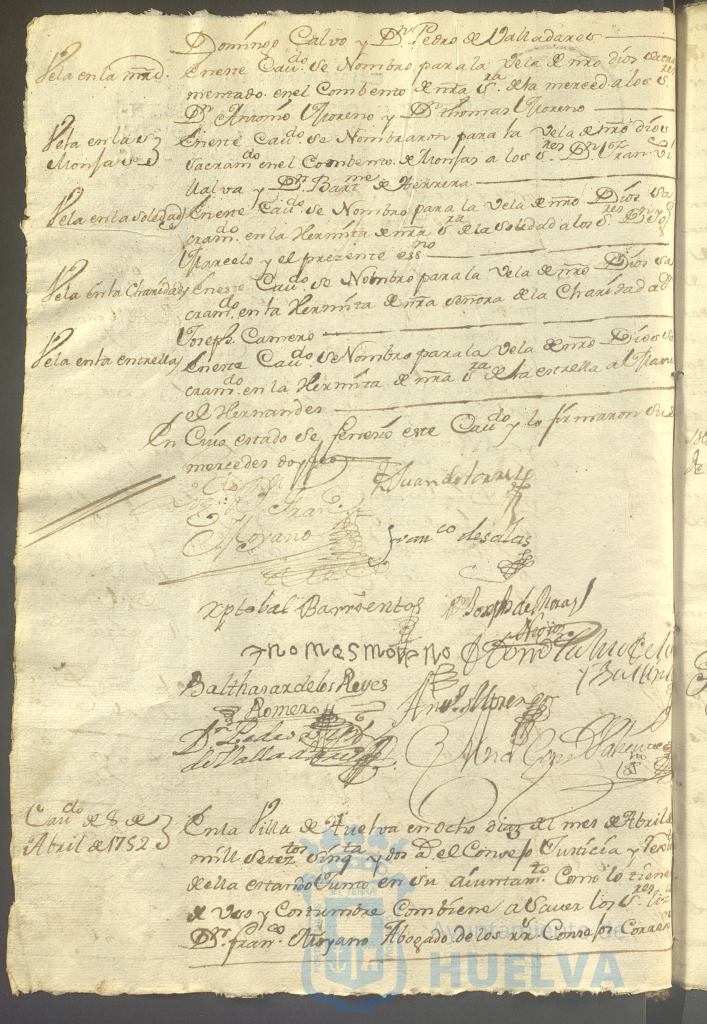 Domingo Calvo y Dn. Pedro de Valladares
Vela en la mrd.
En este Cavdo. se Nombro para la Vela de nro Dios sacra
mentado en el Combento de nra Sra. de la merced a los Sres.
Dn. Antonio Moreno y Dn. thomas Moreno
Vela en las
Monjas
En este Cavdo. se Nombraron para la Vela de nro Dios
sacramdo. en el Combento de Monjas a los Sres. Dn.
y Dn. Barme. de Herrera
Vela en la soledad
En este Cavdo. se Nombro para la Vela de nro Dios sa
cramdo. en la Hermita de nra Sra. de la Soledad a los Sres.
Marcelo y el prezente essno
Vela en la Charidad
En este Cavdo. se Nombro para la Vela de nro Dios sa
cramdo. en la Hermita de nra señora de la Charidad a
Joseph Camero
Vela en la entrella
En este Cavdo. se Nombro para la Vela de nro Dios sa
cramdo. en la Hermita de nra Sra. de la estrella a Manu
el Hernandes
En Cuio estado se fenecio este Cavdo. y lo firmaron sus
mercedes doy fee
Juan de torres
Fran.
Moyano
Franco de salas
xptobal Barrientos
Joseph de
thomas moreno
Balthasar de los Reyes
Romero
Anto. Moreno
Dn. Pedro
de Valladares
Cavdo. de 8 de
Abril de 1752
En la Villa de Huelva en ocho dias del mes de Abril de
mill seteztos. sinqta. y dos as. el Consejo Justicia y Rexto.
della estando Junto en su aiuntamto. Como lo tiene
de Vso y Costumbre Combiene a Saver los Sres.
Dn. franco. Moyano Abogado de los rs. Consejos Correxor
Ayuntamiento de
HUELVA